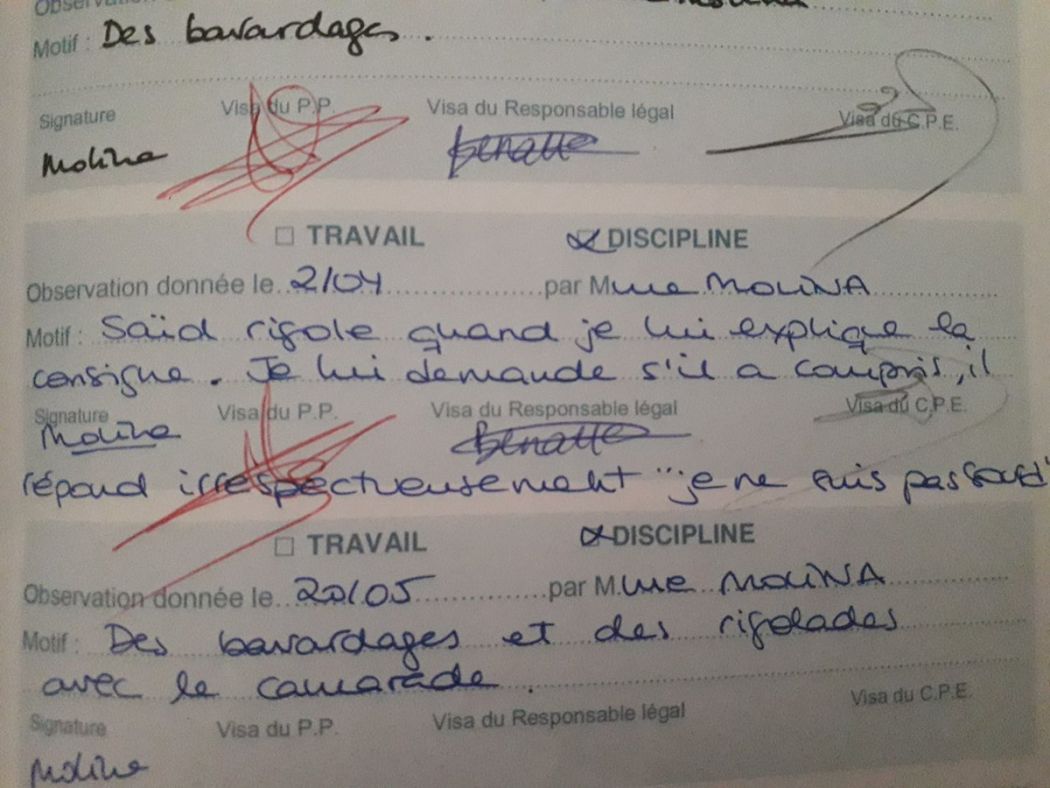 Motif : Des bavardages.
Signature Visa du P.P. Visa du Responsable légal Visa du C.P.E.
Molina benatte
☐ TRAVAIL ☒ DISCIPLINE
Observation donnée le 2/04 par Mme MOLINA
Motif : Saïd rigole quand je lui explique la
consigne. Je lui demande s'il a compris, il
Signature Visa du P.P. Visa du Responsable légal Visa du C.P.E.
Molina Benatte
répond irrespectueusement "je ne suis pas sourd"
☐ TRAVAIL ☒ DISCIPLINE
Observation donnée le 20/05 par Mme MOLINA
Motif : Des bavardages et des rigolades
avec le camarade.
Signature Visa du P.P. Visa du Responsable légal Visa du C.P.E.
Molina